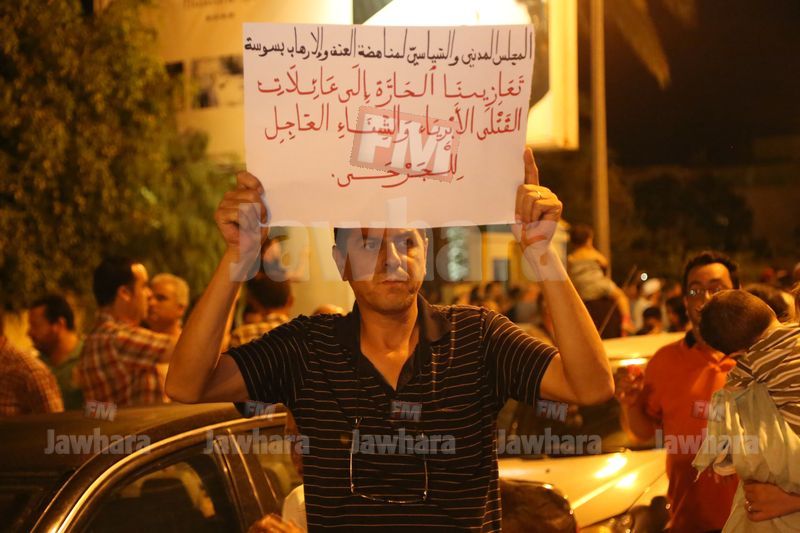 المجلس المدني والسياسيّ لمناهضة العنف والإرهاب بسوسة
تَعَازِينَا الحَارَّة إِلَى عَائِلَات
القَتْلَى الأَبْرِيَاء وَالشِّفَاءِ العَاجِل
لِلْجَرْحَى.
FM
Jawhara
FM
Jawhara
FM
Jawhara
FM
Jawhara
FM
Jawhara